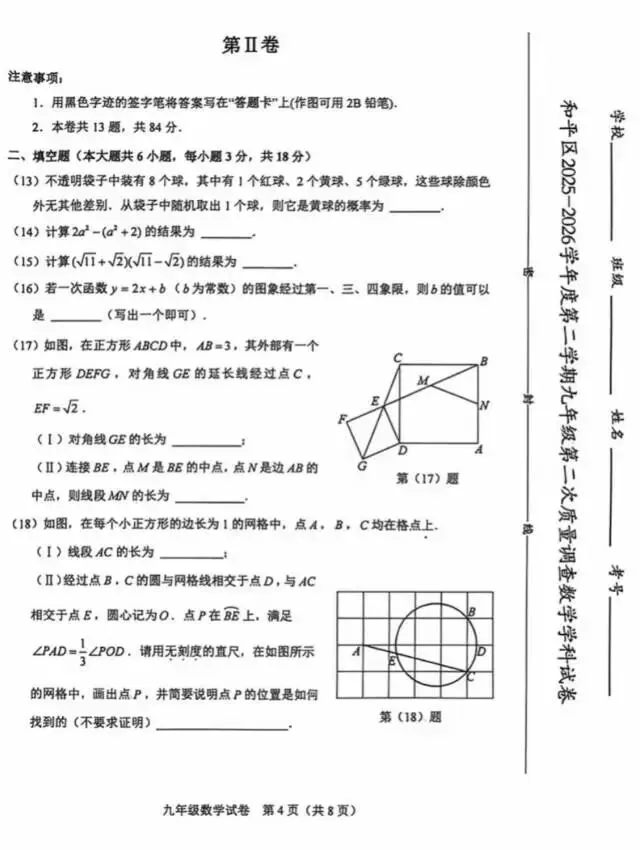 第Ⅱ卷
注意事项:
1．用黑色字迹的签字笔将答案写在“答题卡”上(作图可用 2B 铅笔).
2．本卷共 13 题，共 84 分．
二、填空题（本大题共 6 小题，每小题 3 分，共 18 分）
（13）不透明袋子中装有 8 个球，其中有 1 个红球、2 个黄球、5 个绿球，这些球除颜色
外无其他差别．从袋子中随机取出 1 个球，则它是黄球的概率为 ________．
（14）计算 2a²－(a²＋2) 的结果为 ________．
（15）计算 (√11＋√2)(√11－√2) 的结果为 ________．
（16）若一次函数 y＝2x＋b（b 为常数）的图象经过第一、三、四象限，则 b 的值可以
是 ________（写出一个即可）．
（17）如图，在正方形 ABCD 中，AB＝3，其外部有一个
正方形 DEFG，对角线 GE 的延长线经过点 C，
EF＝√2．
（Ⅰ）对角线 GE 的长为 ________；
（Ⅱ）连接 BE，点 M 是 BE 的中点，点 N 是边 AB 的
中点，则线段 MN 的长为 ________．
C
B
M
E
N
F
D
A
G
第（17）题
（18）如图，在每个小正方形的边长为 1 的网格中，点 A，B，C 均在格点上．
（Ⅰ）线段 AC 的长为 ________；
（Ⅱ）经过点 B，C 的圆与网格线相交于点 D，与 AC
相交于点 E，圆心记为 O．点 P 在 B͡E 上，满足
∠PAD＝1/3∠POD．请用无刻度的直尺，在如图所示
的网格中，画出点 P，并简要说明点 P 的位置是如何
找到的（不要求证明）________________．
B
A
D
E
C
第（18）题
九年级数学试卷 第 4 页（共 8 页）
密
封
线
和平区2025-2026学年度第二学期九年级第二次质量调查数学学科试卷
学校________ 班级________ 姓名________ 考号________